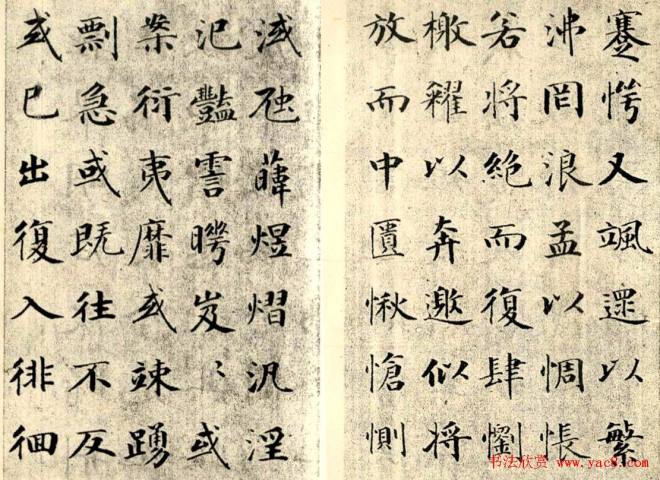 蹇愕又颯遝以繁
沸罔浪孟以惆悵
若將絕而復肆懰
檄糴以奔邀似將
放而中匱愀愴惻
淢虺韡煜熠汎淫
氾豔霅曄岌〻或
案衍夷靡或竦踴
剽急或既往不反
或已出復入徘徊
书法欣赏 www.yac8.com